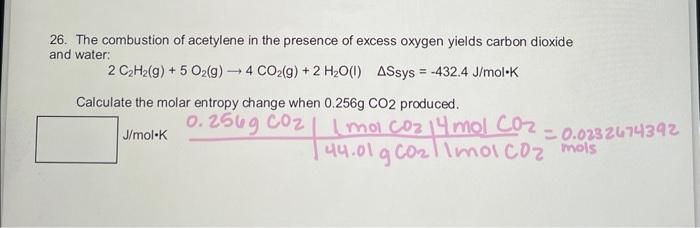 26. The combustion of acetylene in the presence of excess oxygen yields carbon dioxide
and water:
2 C₂H₂(g) + 5 O₂(g) → 4 CO₂(g) + 2 H₂O(l) ΔSsys = -432.4 J/mol•K
Calculate the molar entropy change when 0.256g CO2 produced.
J/mol•K
0.256g CO2 | 1 mol CO2 | 4 mol CO2 = 0.0232674392
44.01 g CO2 | 1 mol CO2 mols